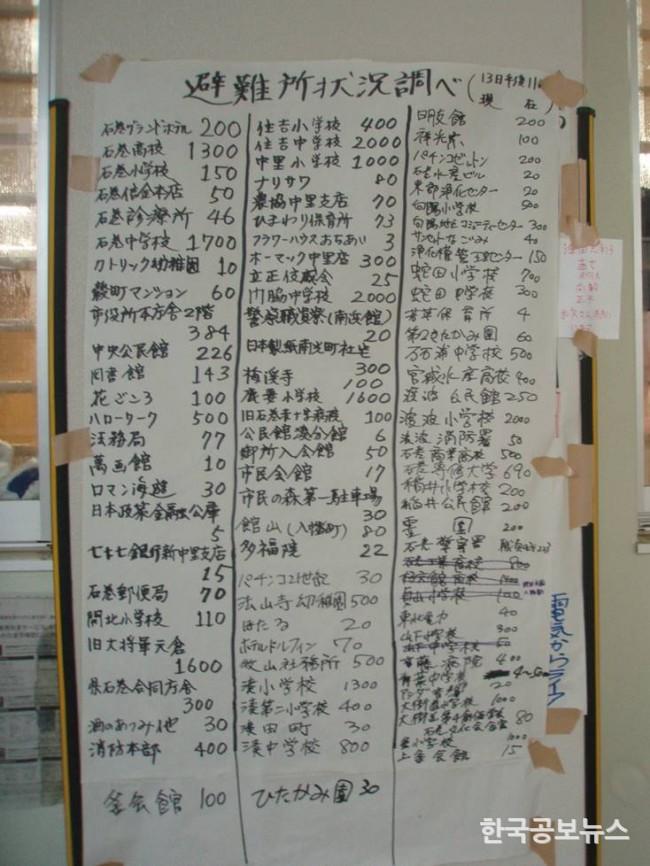 避難所状況調べ(13日午後11
現 在)
石巻グランドホテル 200
石巻高校 1300
石巻小学校 150
石巻信金本店 50
石巻診療所 46
石巻中学校 1700
カトリック幼稚園 10
穀町マンション 60
市役所本庁舎2階
384
中央公民館 226
図書館 143
花ごころ 100
ハローワーク 500
法務局 77
萬画館 10
ロマン海遊 30
日本政策金融公庫
5
七十七銀行新中里支店
15
石巻郵便局 70
開北小学校 110
旧大将軍元倉
1600
県石巻合同庁舎
300
酒のあつみ他 30
消防本部 400
釜会館 100
住吉小学校 400
住吉中学校 2000
中里小学校 1000
ナリサワ 80
農協中里支店 70
ひまわり保育所 73
フラワーハウスおちあい 3
ホーマック中里店 300
立正佼成会 25
門脇中学校 2000
警察職員寮(南浜館)
20
日本製紙南光町社宅
300
梅渓寺 100
鹿妻小学校 1600
旧石巻赤十字病院 100
公民館湊分館 6
御所入会館 50
市民会館 17
市民の森第一駐車場
30
館山(八幡町) 80
多福院 22
パチンコ21世紀 30
法山寺幼稚園 500
ほたる 20
ホテルドルフィン 70
牧山社務所 500
湊小学校 1300
湊第二小学校 400
湊田町 30
湊中学校 800
ひたかみ園 30
200
祥光苑 100
200
20
東部浄化センター 20
向陽小学校 500
向陽地区コミュニティセンター 300
サンセットなごみ 40
150
蛇田小学校 700
蛇田中学校 300
若草保育所 4
第2ひたかみ園 60
万石浦中学校 500
宮城水産高校 400
渡波公民館 250
渡波小学校 2000
渡波消防署 50
石巻商業高校 500
石巻専修大学 690
稲井小学校 200
稲井公民館 200
霊園 200
石巻警察署
800
100
東北電力 40
山下小学校 300
山下中学校 50
斎藤病院 400
青葉中学校 4~500
20
大街道小学校 1000
80
石巻文化会館
釜小学校 1000
上釜会館 15
電気からライフ
한국공보뉴스